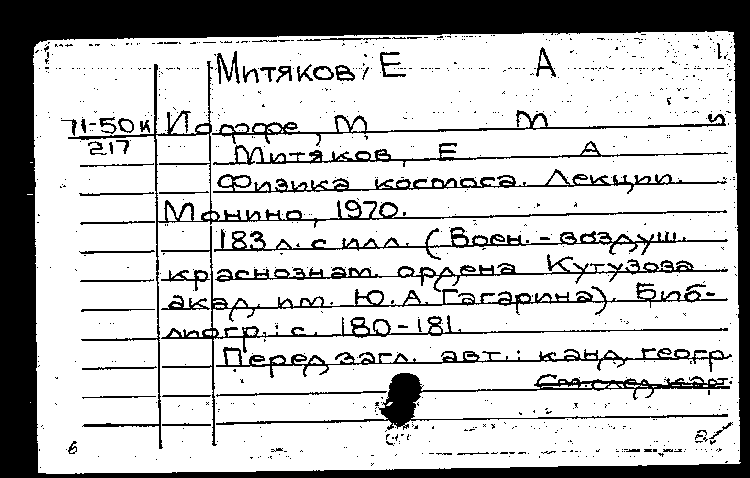 1.
Митяков, Е А
71-50к Иоффе, М М и
217 Митяков, Е А
Физика космоса. Лекции.
Монино, 1970.
183 л. с илл. (Воен.-воздуш.
краснознам. ордена Кутузова
акад. им. Ю. А. Гагарина). Биб-
лиогр.: с. 180-181.
Перед загл. авт.: канд. геогр.
См. след. карт.
6